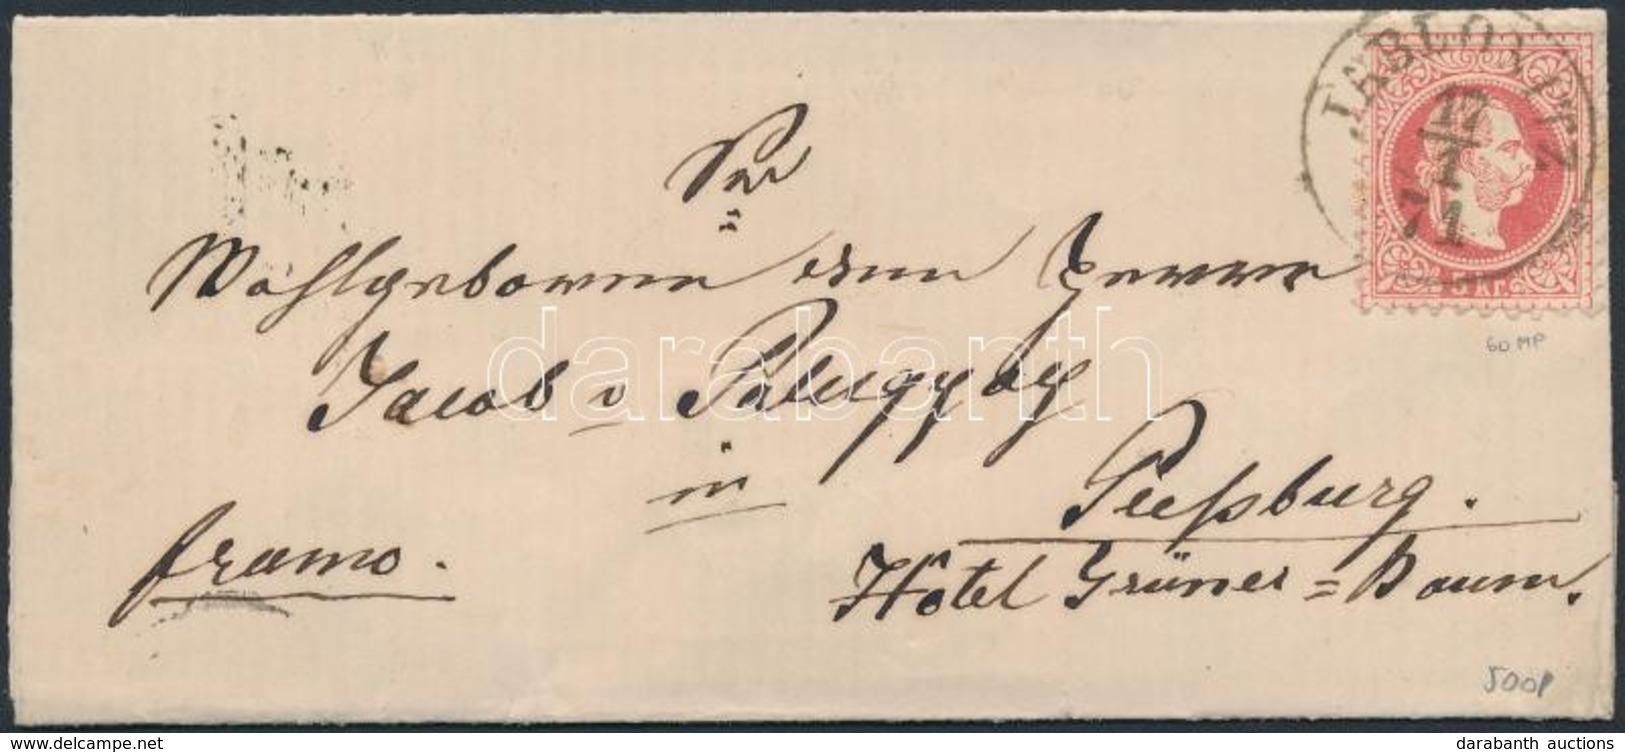 JABLONITZ
12
1
71
Sr
Wohlgeboren dem Herrn
Jacob v Palugyay
in
Preßburg.
franco.
Hôtel Grüner = Baum.
60 MP
500P
darabanth
www.delcampe.net
darabanth auctions